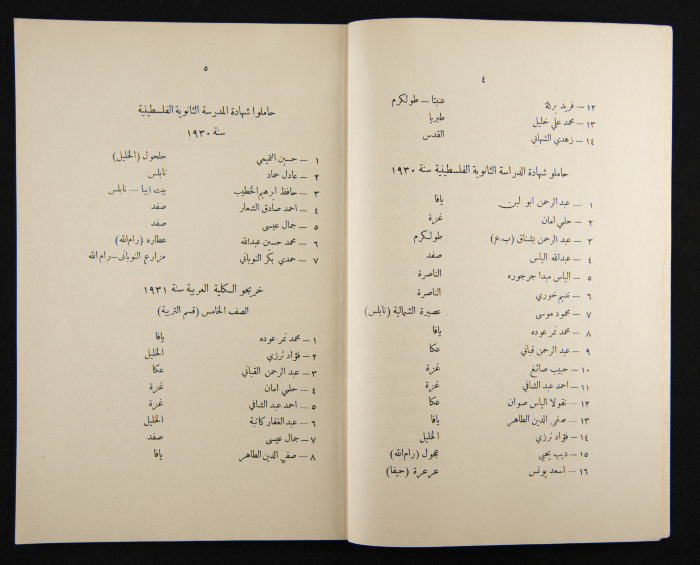 ٤
١٢ – فريد بزلة عنبتا – طولكرم
١٣ – محمد علي خليل طبريا
١٤ – زهدي الشهابي القدس
حاملو شهادة الدراسة الثانوية الفلسطينية سنة ١٩٣٠
١ – عبد الرحمن ابو لبن يافا
٢ – حلمي امان غزة
٣ – عبد الرحمن بشناق (ب.ع) طولكرم
٤ – عبدالله الياس صفد
٥ – الياس مبدا جرجوره الناصرة
٦ – نديم خوري الناصرة
٧ – محمود موسى عصيرة الشمالية (نابلس)
٨ – محمد نمر عوده يافا
٩ – عبد الرحمن قباني عكا
١٠ – حبيب صائغ غزة
١١ – احمد عبد الشافي غزة
١٢ – نقولا الياس صوان عكا
١٣ – صفي الدين الطاهر يافا
١٤ – فؤاد ترزي الخليل
١٥ – ديب يحيى عجول (رام الله)
١٦ – اسعد يونس عرعرة (حيفا)
٥
حاملوا شهادة المدرسة الثانوية الفلسطينية
سنة ١٩٣٠
١ – حسين النقيمي حلحول (الخليل)
٢ – عادل حماد نابلس
٣ – حافظ ابرهيم الخطيب بيت ايبا – نابلس
٤ – احمد صادق الشعار صفد
٥ – جمال عيسى صفد
٦ – محمد حسين عبدالله عطاره (رام الله)
٧ – حمدي بكر النوباني مزارع النوباني – رام الله
خريجو الكلية العربية سنة ١٩٣١
الصف الخامس (قسم التربية)
١ – محمد نمر عوده يافا
٢ – فؤاد ترزي الخليل
٣ – عبد الرحمن القباني عكا
٤ – حلمي امان غزة
٥ – احمد عبد الشافي غزة
٦ – عبد الغفار كاتبة الخليل
٧ – جمال عيسى صفد
٨ – صفي الدين الطاهر يافا